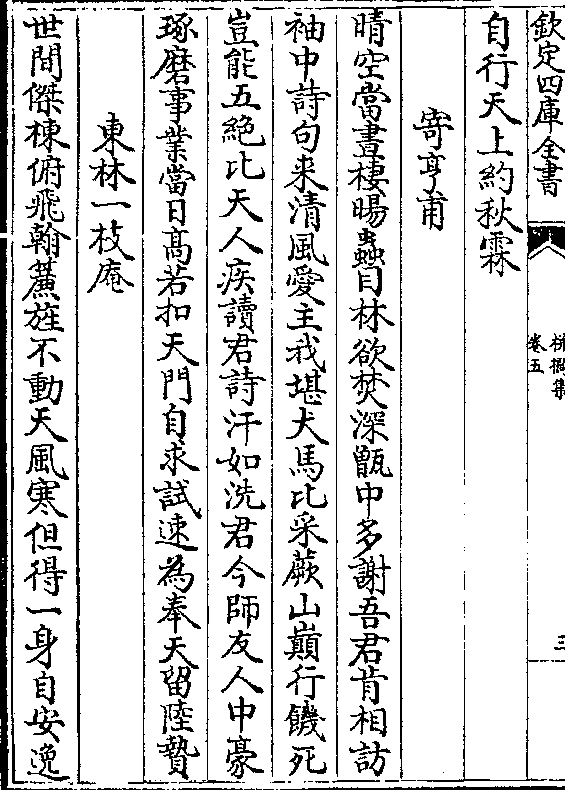 欽定四庫全書
卷五
三
自行天上約秋霖
寄亨甫
晴空當晝棲暘蟲目林欲焚深甑中多謝吾君肯相訪
袖中詩句来清風愛主我堪犬馬比采蕨山巔行饑死
豈能五絶比天人疾讀君詩汗如洗君今師友人中豪
琢磨事業當日髙若扣天門自求試速為奉天留陸贄
東林一枝庵
世間傑棟俯飛翰薦旌不動天風寒但得一身自安逸